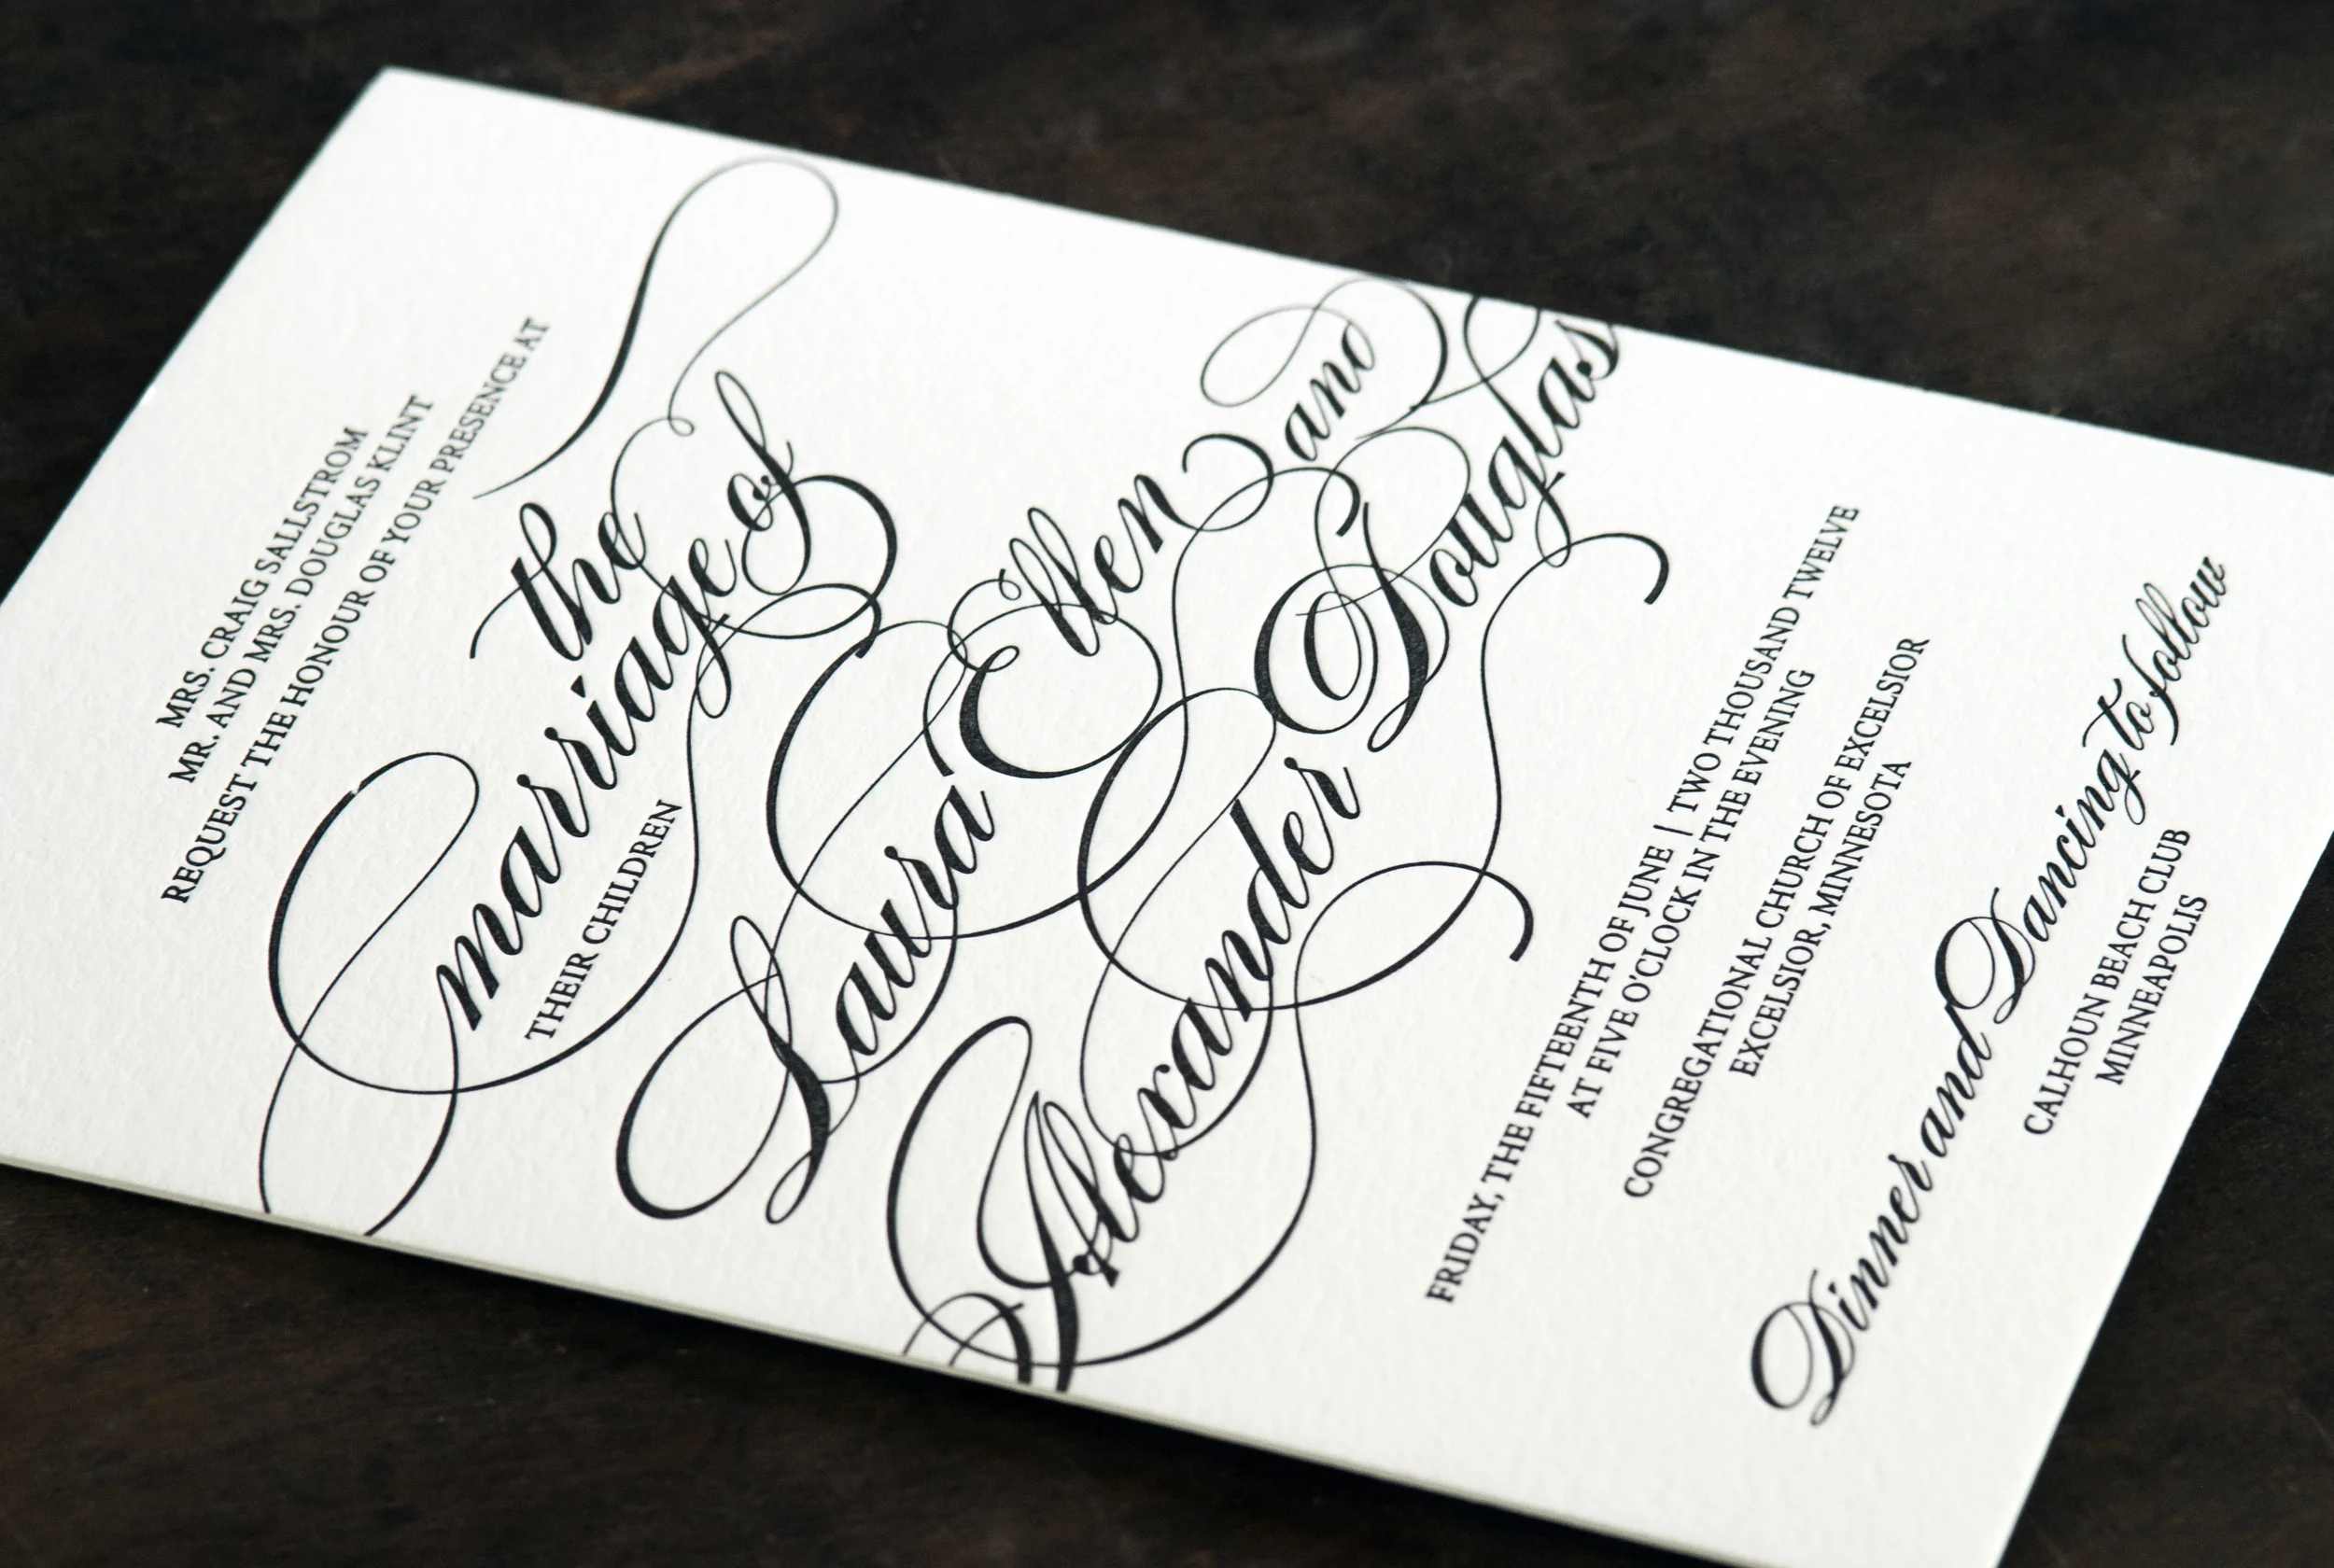 MRS. CRAIG SALLSTROM
MR. AND MRS. DOUGLAS KLINT
REQUEST THE HONOUR OF YOUR PRESENCE AT
the
marriage of
THEIR CHILDREN
Laura Ellen and
Alexander Douglas
FRIDAY, THE FIFTEENTH OF JUNE | TWO THOUSAND TWELVE
AT FIVE O'CLOCK IN THE EVENING
CONGREGATIONAL CHURCH OF EXCELSIOR
EXCELSIOR, MINNESOTA
Dinner and Dancing to follow
CALHOUN BEACH CLUB
MINNEAPOLIS